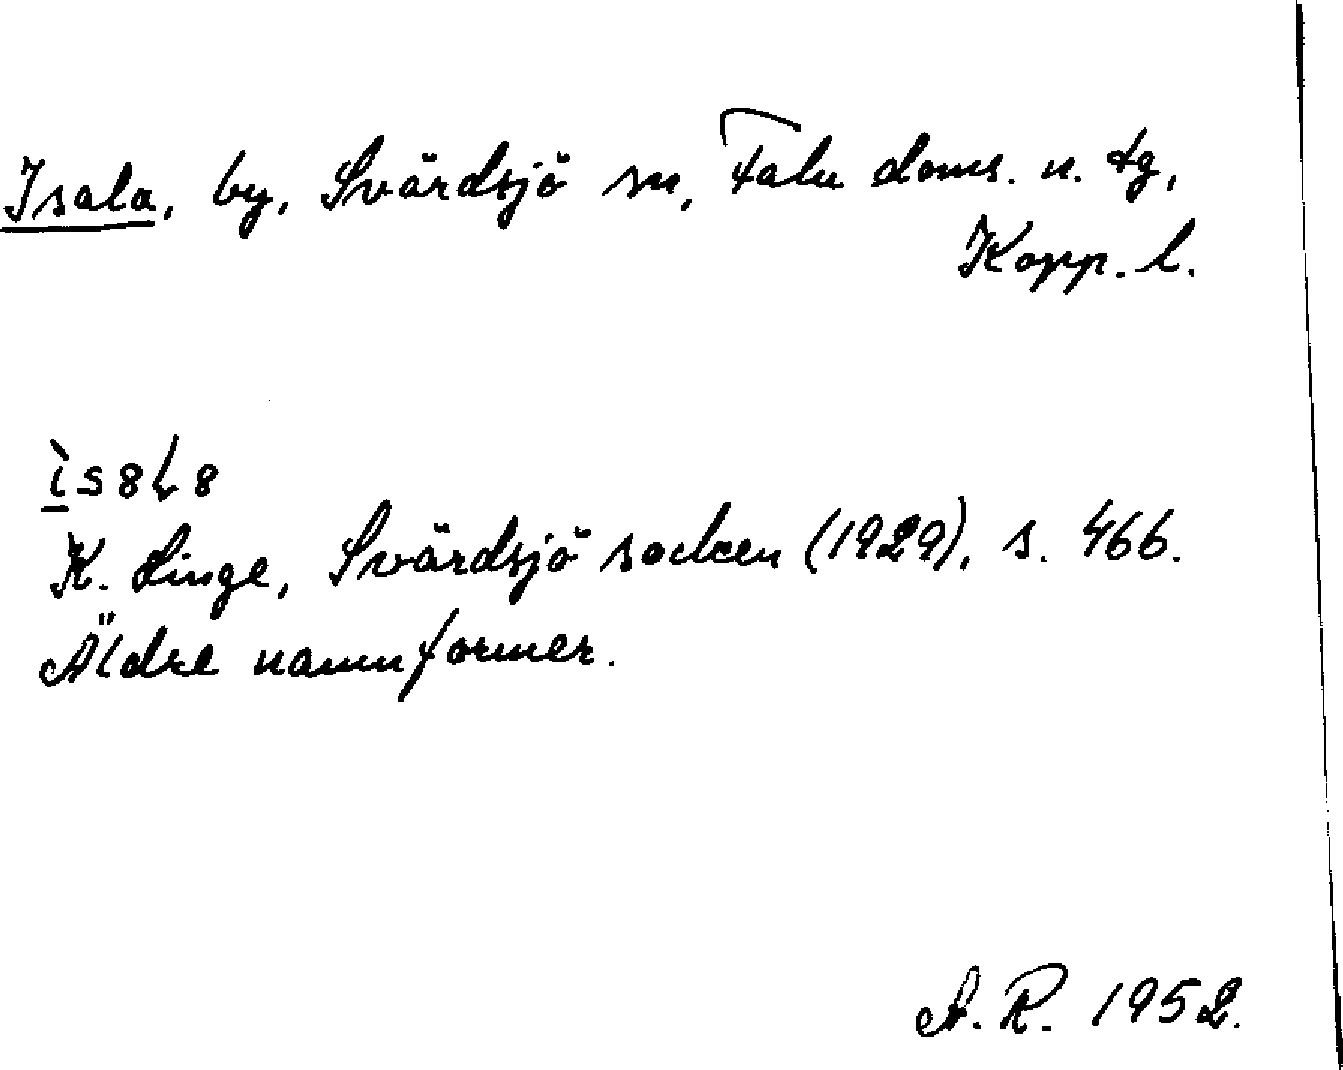 Isala, by, Svärdsjö sn, Falu doms. n. tg,
Kopp. l.
ìs8ł8
K. Linge, Svärdsjö socken (1929), s. 466.
Äldre namnformer.
A. R. 1952.